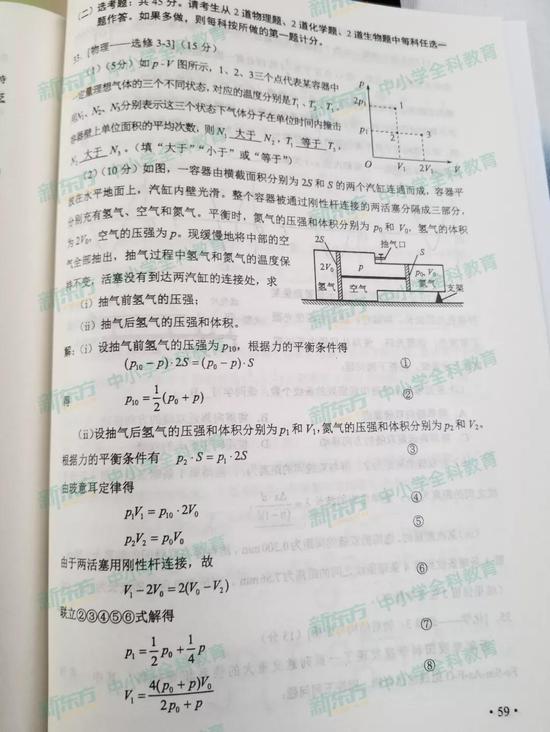 (二) 选考题：共 45 分。请考生从 2 道物理题、2 道化学题、2 道生物题中每科任选一
题作答。如果多做，则每科按所做的第一题计分。
33. [物理——选修 3-3] (15 分)
(1) (5分) 如 p-V 图所示，1、2、3三个点代表某容器中
一定量理想气体的三个不同状态，对应的温度分别是T₁、T₂、T₃，
用N₁、N₂、N₃分别表示这三个状态下气体分子在单位时间内撞击
容器壁上单位面积的平均次数，则 N₁ 大于 N₂，T₁ 等于 T₃，
N₂ 大于 N₃。(填“大于”“小于”或“等于”)
p
2p₁
p₁
1
2
3
O
V₁
2V₁
V
(2) (10 分) 如图，一容器由横截面积分别为 2S 和 S 的两个汽缸连通而成，容器平
放在水平地面上，汽缸内壁光滑。整个容器被通过刚性杆连接的两活塞分隔成三部分，
分别充有氢气、空气和氮气。平衡时，氮气的压强和体积分别为 p₀ 和 V₀，氢气的体积
为 2V₀，空气的压强为 p。现缓慢地将中部的空
气全部抽出，抽气过程中氢气和氮气的温度保
持不变，活塞没有到达两汽缸的连接处，求
(i) 抽气前氢气的压强；
(ii) 抽气后氢气的压强和体积。
2S
抽气口
S
2V₀
p
p₀, V₀
氢气
空气
氮气
支架
解：(i) 设抽气前氢气的压强为 p₁₀，根据力的平衡条件得
(p₁₀ − p)·2S = (p₀ − p)·S ①
得 p₁₀ = 1/2 (p₀ + p) ②
(ii)设抽气后氢气的压强和体积分别为 p₁ 和 V₁，氮气的压强和体积分别为 p₂ 和 V₂。
根据力的平衡条件有 p₂·S = p₁·2S ③
由玻意耳定律得
p₁V₁ = p₁₀·2V₀ ④
p₂V₂ = p₀V₀ ⑤
由于两活塞用刚性杆连接，故
V₁ − 2V₀ = 2(V₀ − V₂) ⑥
联立②③④⑤⑥式解得
p₁ = 1/2 p₀ + 1/4 p ⑦
V₁ = 4(p₀ + p)V₀ / 2p₀ + p ⑧
·59·
新东方 中小学全科教育